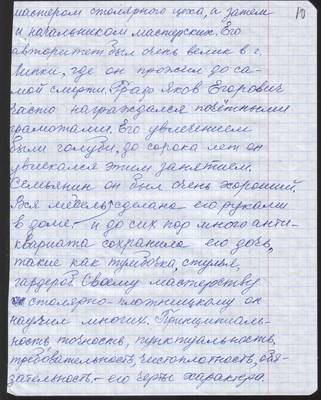 10
мастером столярного цеха, а затем
и начальником мастерских. Его
авторитет был очень велик в г.
Липки, где он прожил до са-
мой смерти. Граф Яков Егорович
часто награждался почётными
грамотами. Его увлечением
были голуби, до сорока лет он
увлекался этим занятием.
Семьянин он был очень хороший.
Вся мебель, сделана его руками
в доме. и до сих пор много анти-
квариата сохранила его дочь,
такие как тумбочка, стулья,
гардероб. Своему мастерству
столярно-плотницкому он
научил многих. Принципиаль-
ность, точность, пунктуальность,
требовательность, чистоплотность, обя-
зательность, – его черты характера.